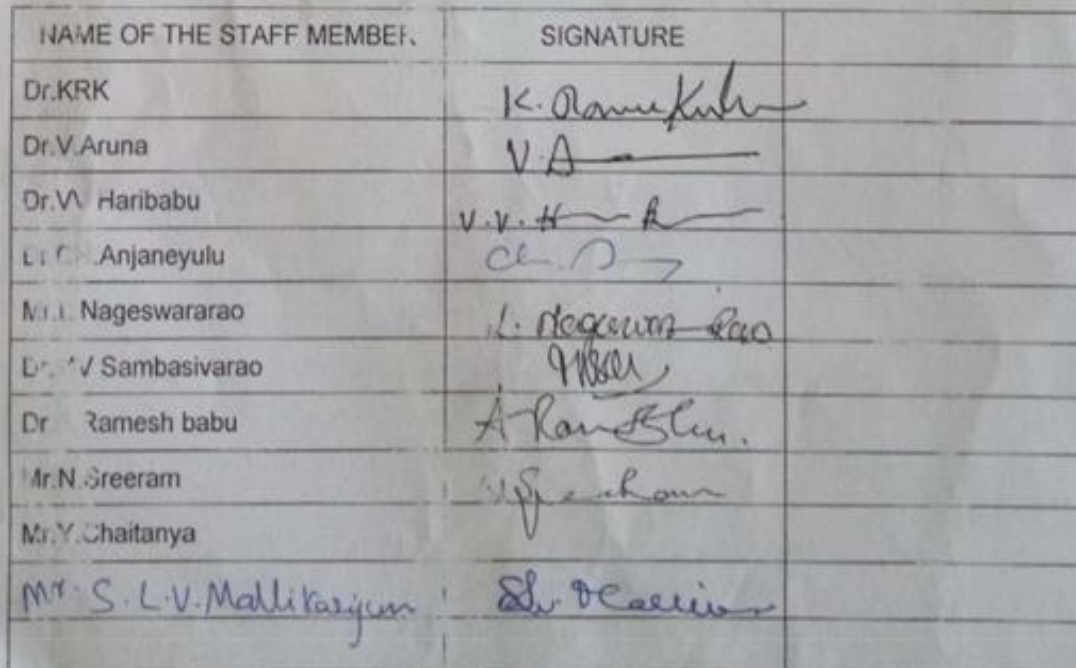 NAME OF THE STAFF MEMBER. SIGNATURE
Dr.KRK K. Rama
Dr.V.Aruna V.A
Dr.VV Haribabu V.V.H R
Dr.CH.Anjaneyulu Ch.
Mr.L Nageswararao L. Nageswara Rao
Dr. V Sambasivarao
Dr Ramesh babu A Ramesh
Mr.N.Sreeram
Mr.Y.Chaitanya
Mr. S.L.V. Mallikarjun